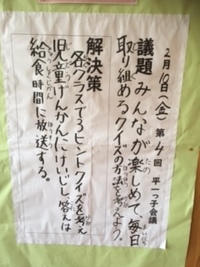 2月19日(金) 第4回 平一っ子会議
議題 みんなが楽しめて、毎日
取り組めるクイズの方法を考えよう。
解決策
各クラスで3ヒントクイズを考え
旧児童げんかんにけいじし、答えは
給食時間に放送する。